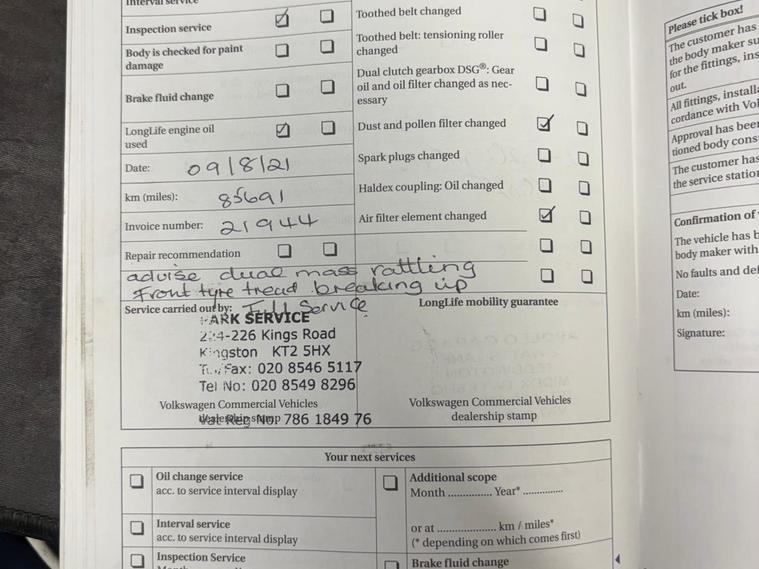 Interval service
Inspection service
Body is checked for paint
damage
Brake fluid change
LongLife engine oil
used
Date: 09/8/21
km (miles): 85691
Invoice number: 21944
Repair recommendation
advise dual mass rattling
Front tyre tread breaking up
Service carried out by: Full Service
PARK SERVICE
224-226 Kings Road
Kingston KT2 5HX
Tel/Fax: 020 8546 5117
Tel No: 020 8549 8296
Volkswagen Commercial Vehicles
dealership stamp
Vat Reg No: 786 1849 76
Toothed belt changed
Toothed belt: tensioning roller
changed
Dual clutch gearbox DSG®: Gear
oil and oil filter changed as nec-
essary
Dust and pollen filter changed
Spark plugs changed
Haldex coupling: Oil changed
Air filter element changed
LongLife mobility guarantee
Volkswagen Commercial Vehicles
dealership stamp
Your next services
Oil change service
acc. to service interval display
Interval service
acc. to service interval display
Inspection Service
Additional scope
Month .............. Year* ..............
or at .................... km / miles*
(* depending on which comes first)
Brake fluid change
Please tick box!
The customer has
the body maker su
for the fittings, ins
out.
All fittings, installa
cordance with Vol
Approval has been
tioned body cons
The customer has
the service station
Confirmation of
The vehicle has b
body maker with
No faults and def
Date:
km (miles):
Signature: